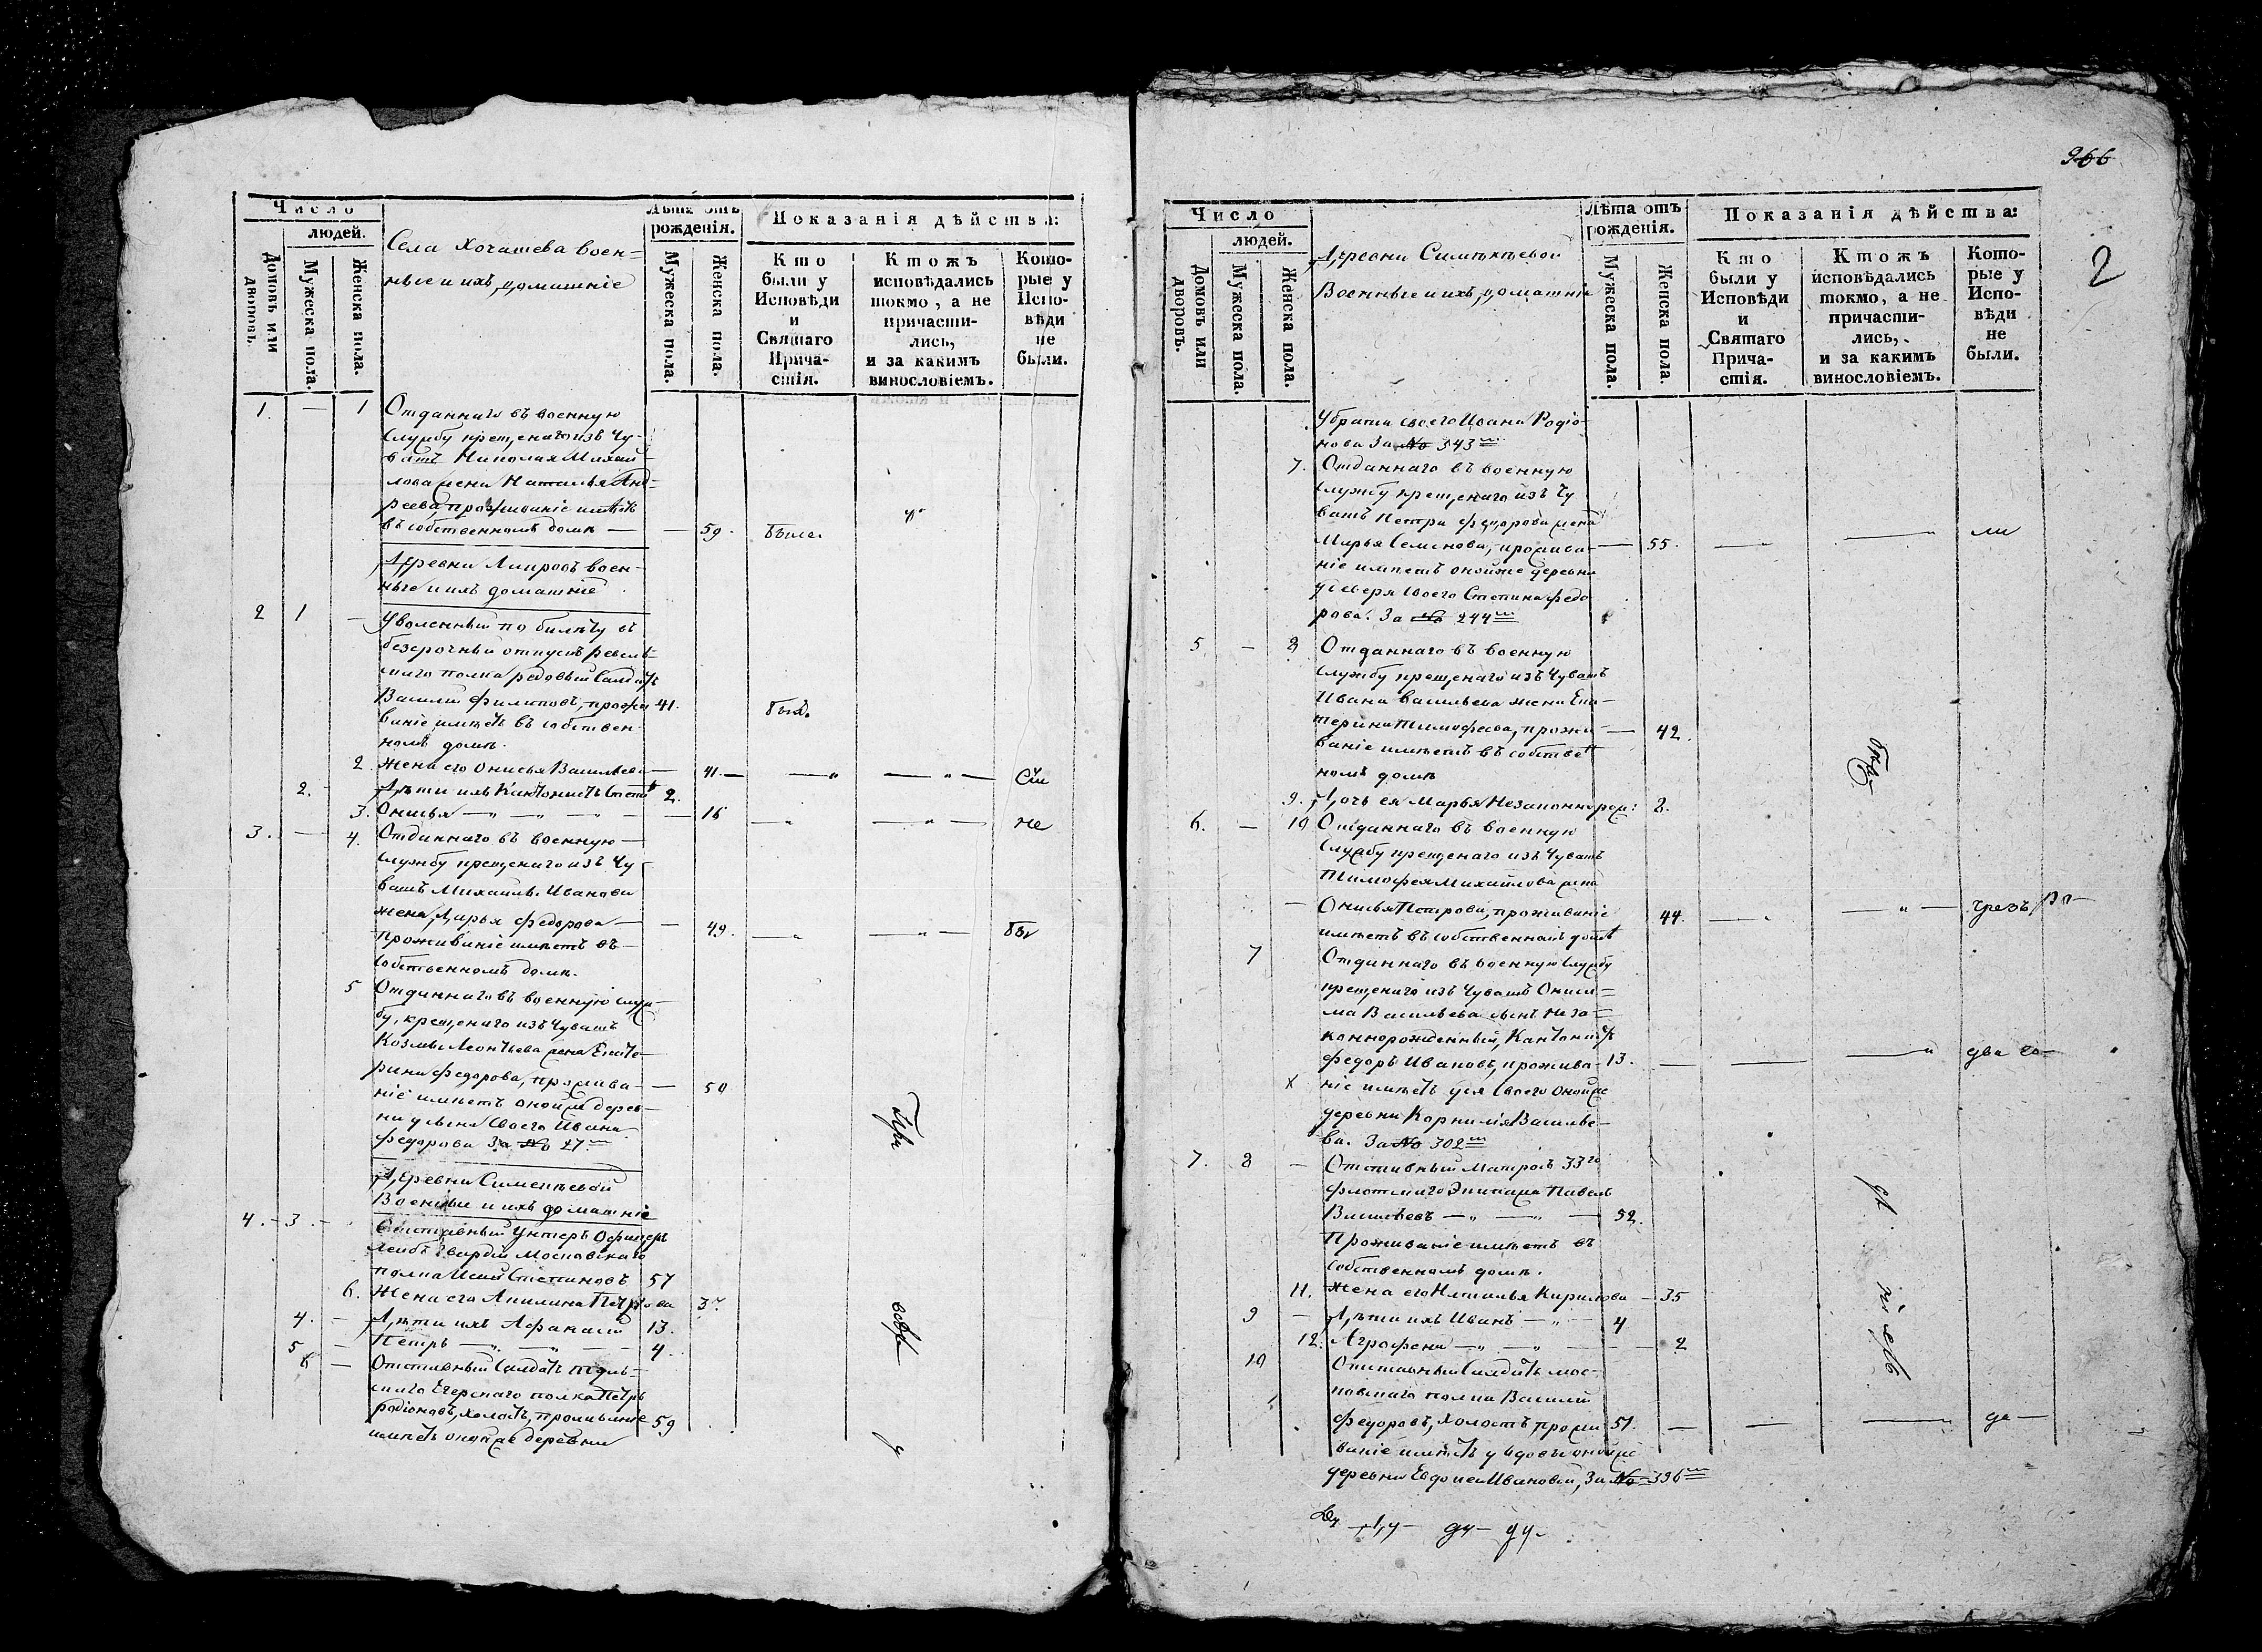 Число
людей.
Домовъ или дворовъ.
Мужеска пола.
Женска пола.
Села Хочашева воен=
ные и ихъ домашніе
Лѣта отъ
рожденія.
Мужеска пола.
Женска пола.
Показанія дѣйства:
Кто
были у
Исповѣди
и
Святаго
Прича-
стія.
Ктожъ
исповѣдались
токмо, а не
причасти-
лись,
и за какимъ
винословіемъ.
Кото-
рые у
Испо-
вѣди
не
были.
1. — 1 Отданнаго въ военную
службу крещенаго изъ Чу-
вашъ Николая Михай
лова жена Наталья Анд=
реева, проживаніе имѣетъ
въ собственномъ домѣ — — 59. была.
Деревни Липовъ воен-
ные и ихъ домашніе
2 1 — Уволенный по билету въ
безсрочный отпускъ
скаго полка рядовый Салдатъ
Василій Филиповъ, прожи 41. былъ.
ваніе имѣетъ въ собствен-
номъ домѣ.
2. Жена его Онисья Васильева — 41. — — „ — „ —
2. Дѣти ихъ Кантонистъ 2.
3. Онисья — „ — „ — — 16 — „ — „ — не
3. — 4. Отданнаго въ военную —
службу крещенаго изъ Чу
вашъ Михаила Иванова
жена Дарья Федорова — — 49. — „ — „ —
проживаніе имѣетъ въ —
собственномъ домѣ.
5 Отданнаго въ военную служ-
бу, крещенаго изъ Чувашъ
Козмы Леонтьева жена Екате-
рина Федорова, прожива- — 50
ніе имѣетъ оной же дерев-
ни у сына своего Ивана
Федорова За № 27
Деревни
Военные и ихъ домашніе
4. — 3. — Отставный Унтеръ Офицеръ
Лейбъ Гвардіи Московскаго
полка Степановъ 57
6. Жена его Акилина Петрова
4. — Дѣти ихъ Афанасій 13.
5 — Петръ — „ — „ — 4.
6 — Отставный Салдатъ
скаго Егерскаго полка Петръ
Родіоновъ, холостъ, проживаніе 59
имѣетъ оной же деревни
366
2
Число
людей.
Домовъ или дворовъ.
Мужеска пола.
Женска пола.
Деревни
Военные и ихъ домашніе
Лѣта отъ
рожденія.
Мужеска пола.
Женска пола.
Показанія дѣйства:
Кто
были у
Исповѣди
и
Святаго
Прича-
стія.
Ктожъ
исповѣдались
токмо, а не
причасти-
лись,
и за какимъ
винословіемъ.
Кото-
рые у
Испо-
вѣди
не
были.
У брата своего Ивана Родіо
нова За № 343
7. Отданнаго въ военную
службу крещенаго изъ Чу
вашъ Петра Федорова жена
Марья Семенова, прожива- — 55. — „ — „ ли
ніе имѣетъ оной же деревни
у деверя своего Степана Федо
рова. За № 244
5 — 8 Отданнаго въ военную
службу крещенаго изъ Чувашъ
Ивана Васильева жена Ека
терина Тимофеева, прожи — 42.
ваніе имѣетъ въ собствен
номъ домѣ
9. Дочь ея Марья Незаконнорож: 8.
6. — 10 Отданнаго въ военную
службу крещенаго изъ Чувашъ
Тимофея Михайлова жена
— Онисья Петрова, проживаніе 44. — „ — „ — чрезъ
имѣетъ въ собственномъ домѣ
7 Отданнаго въ военную службу
крещенаго изъ Чувашъ Ониси=
ма Васильева сынъ неза=
коннорожденный, Кантонистъ
Федоръ Ивановъ, прожива- 13. — — — „ два го—
х ніе имѣетъ у дяди своего оной же
деревни Корнилія Василье-
ва. За № 302
7. 8 — Отставный Матросъ 33го
флотскаго Экипажа Павелъ
Васильевъ — „ — „ — 52.
Проживаніе имѣетъ въ
собственномъ домѣ.
11. Жена его Наталья Кирилова — 35
9 — Дѣти ихъ Иванъ — „ — 4
12. Агрофена — „ — „ — — 2
10 Отставный Салдатъ мос-
ковскаго полка Василій
Федоровъ, холостъ, прожи 51. — — — да —
ваніе имѣетъ у вдовы оной же
деревни Евдокеи Ивановой, За № 336